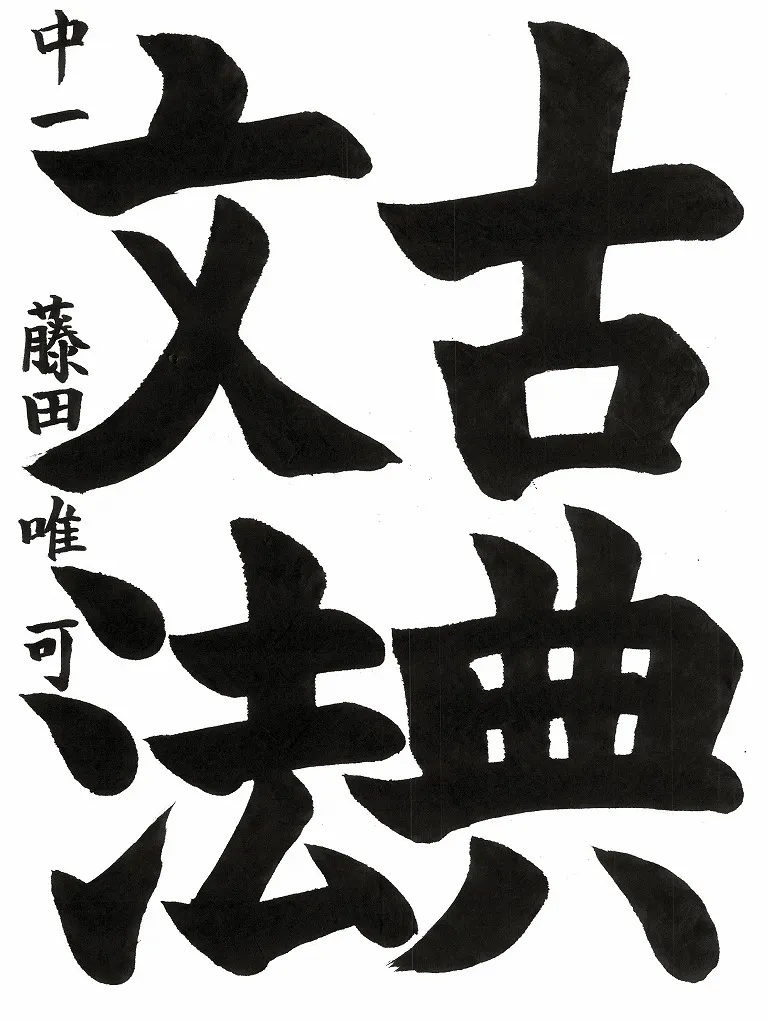 古典
文法
中一 藤田 唯可